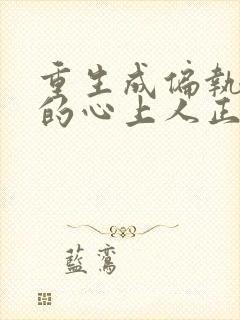 重生成偏執
的心上人正
藍鸞